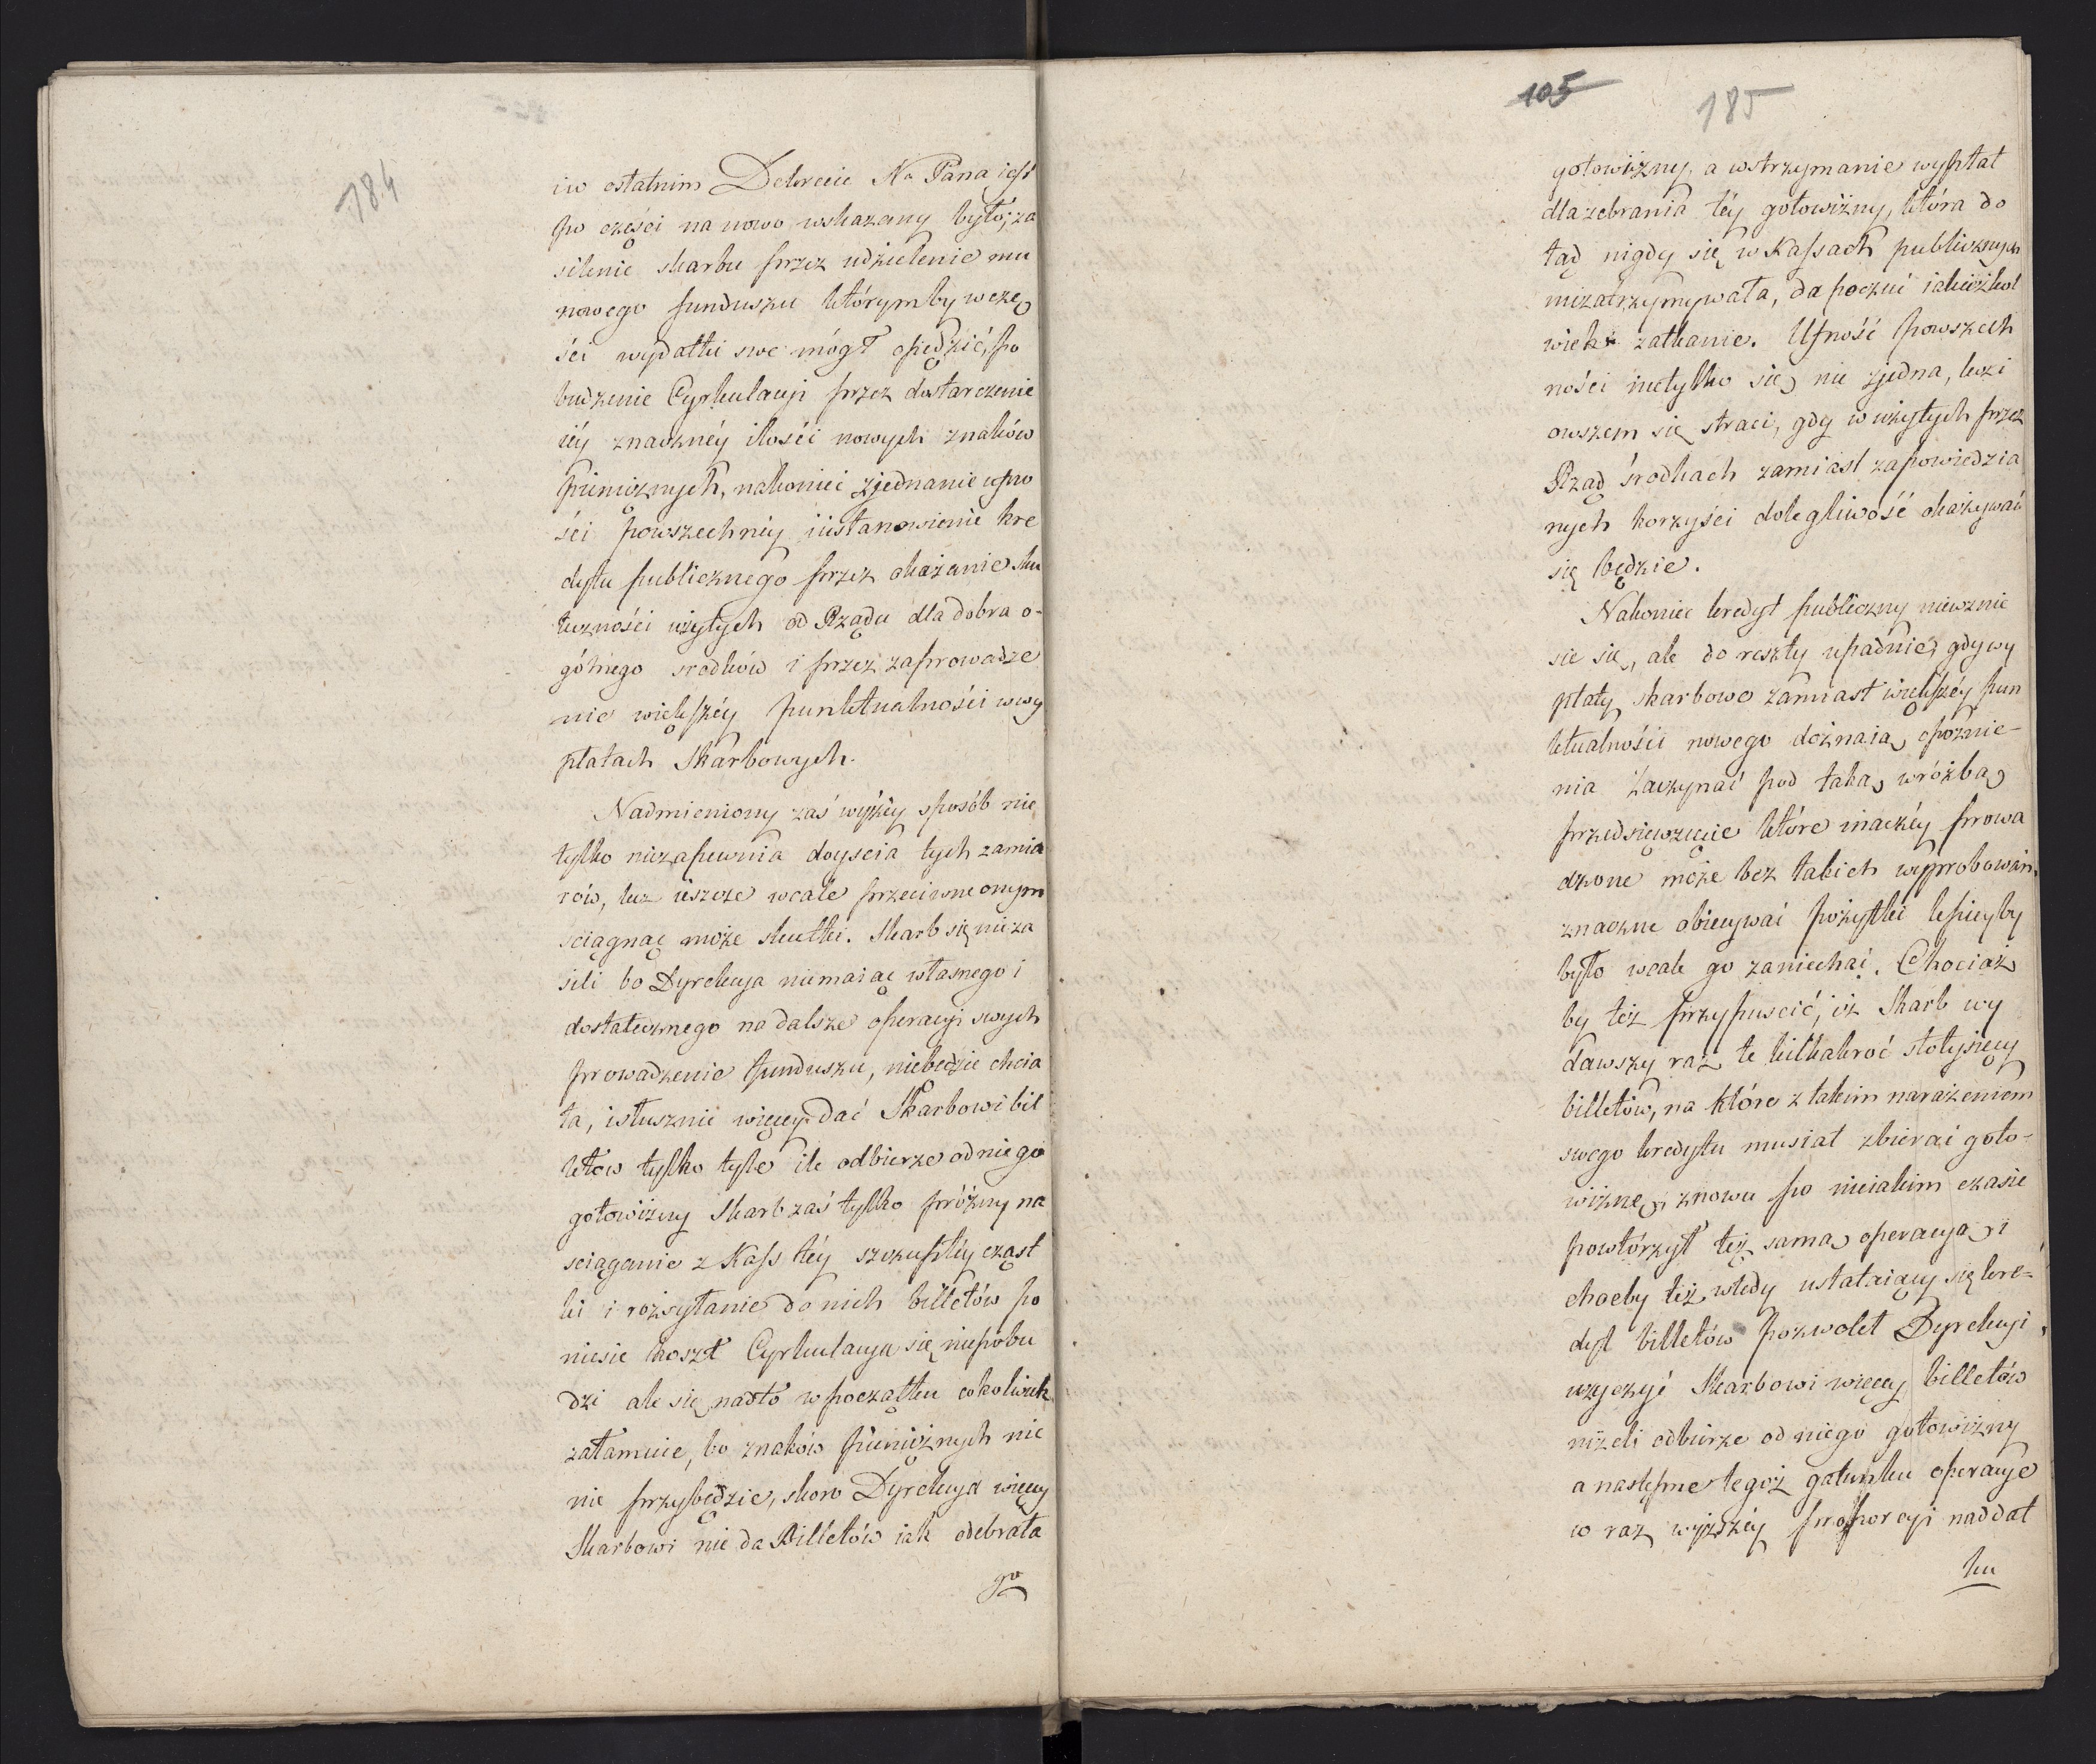 184
iw ostatnim Dekrecie Nº Pana iest
po części na nowo wskazany było, za
silenie skarbu przez udzielenie mu
nowego funduszu którymby w czę
ści wydatki swe mógł opędzić, po
budzenie Cyrkulacyi przez dostarczenie
iéy znacznéy ilości nowych znaków
pieniężnych, nakoniec zjednanie ufno
ści powszechnéy i ustanowienie kre
dytu publicznego przez okazanie sku
teczności użytych od Rządu dla dobra o-
gólnego srodków i przez zaprowadze
nie większéy punktualności w wy
płatach Skarbowych.
Nadmieniony zaś wyżéy sposób nie
tylko niezapewnia doyscia tych zamia
rów, lecz ieszcze wcale przeciwne onym
sciągnąć może skutki. Skarb się nieza
sili bo Dyrekcya niemaiąc własnego i
dostatecznego na dalsze operacyi swych
prowadzenie funduszu, niebędzie chcia
ła, i słusznie więcey dać Skarbowi bil
letów tylko tyle ile odbierze od niego
gotowizny Skarb zaś tylko próżny na
sciąganie z Kass téy szczupłéy cząst
ki i rozsyłanie do nich billetów po
niesie koszt Cyrkulacya się niepobu
dzi ale się nadto w początku cokolwiek
zatamuie, bo znaków pieniężnych nie
nie przybędzie, skoro Dyrekcya więcey
Skarbowi nie da Billetów iak odebrała
go
105
185
gotowizny, a wstrzymanie wypłat
dla zebrania téy gotowizny, która do
tąd nigdy się w Kassach publicznych
niezatrzymywała, da poczuć iakieżkol
wiek zatkanie. Ufność powszech
ności nietylko się nie zjedna, lecz i
owszem się straci, gdy w użytych przez
Rząd środkach zamiast zapowiedzia
nych korzyści dolegliwość okazywać
się będzie.
Nakoniec kredyt publiczny niewznie
sie się, ale do reszty upadnie, gdy wy
płaty skarbowe zamiast większéy pun
ktualności nowego doznaią opóznie-
nia Zaczynać pod taką wróżbą
przedsięwzięcie które inaczéy prowa
dzone może bez takich wyprobowań
znaczne obiecywać pożytki lepiéyby
było wcale go zaniechać. Chociaż
by też przypuscić, iż Skarb wy
dawszy raz te kilkakroć stotysięcy
billetów, na które z takim narażeniem
swego kredytu musiał zbierać goto-
wiznę, znowu po nieiakim czasie
powtórzył tęż samą operacyą i
choćby też wtedy ustalaiący się kre-
dyt billetów pozwolił Dyrekcyi
użyczyć Skarbowi więcey billetów
niżeli odbierze od niego gotowizny
a następne tegoż gatunku operacye
w raz wyższéy proporcyi naddat
ku